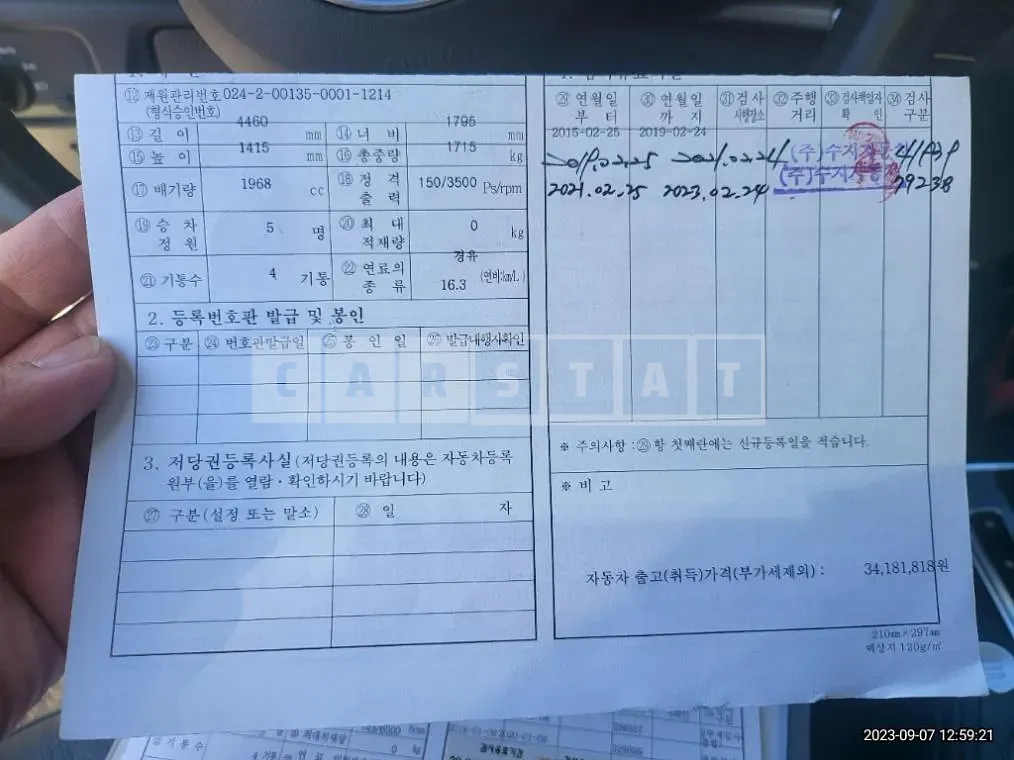 ⑫ 제원관리번호 024-2-00135-0001-1214
(형식승인번호)
⑬ 길 이 4460 mm ⑭ 너 비 1795 mm
⑮ 높 이 1415 mm ⑯ 총중량 1715 kg
⑰ 배기량 1968 cc ⑱ 정 격 출 력 150/3500 Ps/rpm
⑲ 승 차 정 원 5 명 ⑳ 최 대 적재량 0 kg
㉑ 기통수 4 기통 ㉒ 연료의 종 류 경유 16.3 (연비:km/L)
2. 등록번호판 발급 및 봉인
㉓ 구분 ㉔ 번호판발급일 ㉕ 봉 인 일 ㉖ 발급대행사확인
3. 저당권등록사실 (저당권등록의 내용은 자동차등록
원부(을)를 열람·확인하시기 바랍니다)
㉗ 구분(설정 또는 말소) ㉘ 일 자
㉙ 연월일 부 터 ㉚ 연월일 까 지 ㉛ 검 사 시행장소 ㉜ 주행 거리 ㉝ 검사책임자 확 인 ㉞ 검사 구분
2015-02-25 2019-02-24
2019.02.25 2021.02.24 (주)수지자동
2021.02.25 2023.02.24 (주)수지자동 79238
※ 주의사항 : ㉙항 첫째란에는 신규등록일을 적습니다.
※ 비 고
자동차 출고(취득)가격(부가세제외) : 34,181,818원
210㎜×297㎜
백상지 120g/㎡
CARSTAT
기 통 수
㉠ 최대적재량
0 kg
검사유효기간
2023-09-07 12:59:21